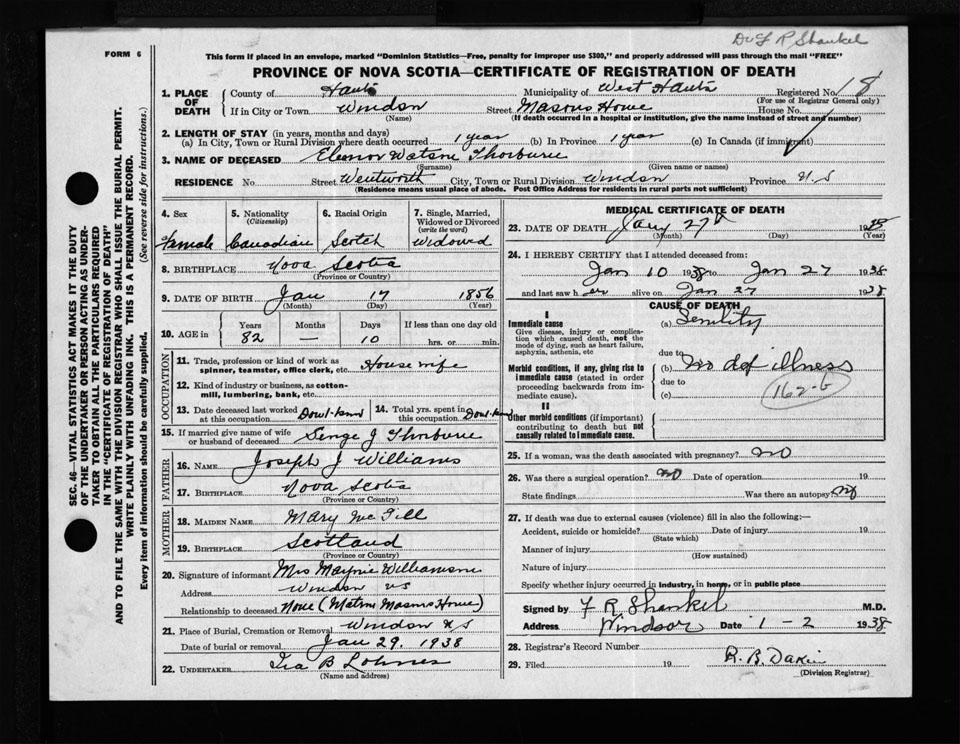 Dr F R Shankel
FORM 6
This form if placed in an envelope, marked "Dominion Statistics—Free, penalty for improper use $300," and properly addressed will pass through the mail "FREE"
PROVINCE OF NOVA SCOTIA—CERTIFICATE OF REGISTRATION OF DEATH
SEC. 46—VITAL STATISTICS ACT MAKES IT THE DUTY
OF THE UNDERTAKER OR PERSON ACTING AS UNDER-
TAKER TO OBTAIN ALL THE PARTICULARS REQUIRED
IN THE "CERTIFICATE OF REGISTRATION OF DEATH"
AND TO FILE THE SAME WITH THE DIVISION REGISTRAR WHO SHALL ISSUE THE BURIAL PERMIT.
WRITE PLAINLY WITH UNFADING INK. THIS IS A PERMANENT RECORD.
Every item of information should be carefully supplied. (See reverse side for instructions.)
1. PLACE OF DEATH County of Hants Municipality of West Hants Registered No. 18
(For use of Registrar General only)
If in City or Town Windsor Street Masons Home House No.
(Name) (If death occurred in a hospital or institution, give the name instead of street and number)
2. LENGTH OF STAY (in years, months and days)
(a) In City, Town or Rural Division where death occurred 1 year (b) In Province 1 year (c) In Canada (if immigrant)
3. NAME OF DECEASED Eleonor Watson Thorburne
(Surname) (Given name or names)
RESIDENCE No. Street Wentworth City, Town or Rural Division Windsor Province N.S
(Residence means usual place of abode. Post Office Address for residents in rural parts not sufficient)
4. Sex Female
5. Nationality (Citizenship) Canadian
6. Racial Origin Scotch
7. Single, Married, Widowed or Divorced (write the word) Widowed
8. BIRTHPLACE Nova Scotia
(Province or Country)
9. DATE OF BIRTH Jan 17 1856
(Month) (Day) (Year)
10. AGE in Years 82 Months — Days 10 If less than one day old hrs. or min.
OCCUPATION
11. Trade, profession or kind of work as spinner, teamster, office clerk, etc. House wife
12. Kind of industry or business, as cotton-mill, lumbering, bank, etc.
13. Date deceased last worked at this occupation Dont know
14. Total yrs. spent in this occupation Dont know
15. If married give name of wife or husband of deceased J Thorburne
FATHER
16. NAME Joseph J Williams
17. BIRTHPLACE Nova Scotia
(Province or Country)
MOTHER
18. MAIDEN NAME Mary McGill
19. BIRTHPLACE Scotland
(Province or Country)
20. Signature of informant Mrs Maynie Williamson
Address Windsor NS
Relationship to deceased None (Matron Masons Home)
21. Place of Burial, Cremation or Removal Windsor N S
Date of burial or removal Jan 29, 1938
22. UNDERTAKER Ira B Lohnes
(Name and address)
MEDICAL CERTIFICATE OF DEATH
23. DATE OF DEATH Jany 27th 1938
(Month) (Day) (Year)
24. I HEREBY CERTIFY that I attended deceased from:
Jan 10 1938 to Jan 27 1938
and last saw her alive on Jan 27 1938
CAUSE OF DEATH
I
Immediate cause (a) Senility
Give disease, injury or complication which caused death, not the mode of dying, such as heart failure, asphyxia, asthenia, etc
due to
Morbid conditions, if any, giving rise to immediate cause (stated in order proceeding backwards from immediate cause). (b) no def illness
due to
(c) 162-b
II
Other morbid conditions (if important) contributing to death but not causally related to immediate cause.
25. If a woman, was the death associated with pregnancy? no
26. Was there a surgical operation? no Date of operation 19
State findings Was there an autopsy? no
27. If death was due to external causes (violence) fill in also the following:—
Accident, suicide or homicide? Date of injury 19
(State which)
Manner of injury
(How sustained)
Nature of injury
Specify whether injury occurred in industry, in home, or in public place
Signed by F R Shankel M.D.
Address Windsor Date 1 - 2 1938
28. Registrar's Record Number
29. Filed 19 R. B. Dakin
(Division Registrar)